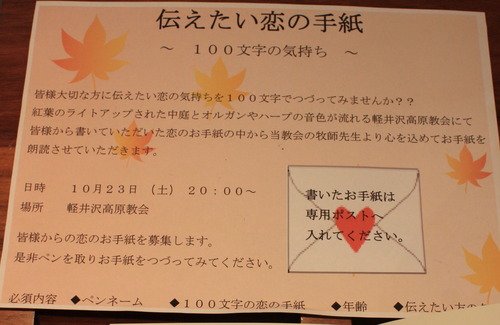 伝えたい恋の手紙
～ １００文字の気持ち ～
皆様大切な方に伝えたい恋の気持ちを１００文字でつづってみませんか？？
紅葉のライトアップされた中庭とオルガンやハープの音色が流れる軽井沢高原教会にて
皆様から書いていただいた恋のお手紙の中から当教会の牧師先生より心を込めてお手紙を
朗読させていただきます。
日時 １０月２３日 （土） ２０：００～
場所 軽井沢高原教会
皆様からの恋のお手紙を募集します。
是非ペンを取りお手紙をつづってみてください。
書いたお手紙は
専用ポストへ
入れてください。
必須内容 ◆ペンネーム ◆１００文字の恋の手紙 ◆年齢 ◆伝えたい方の